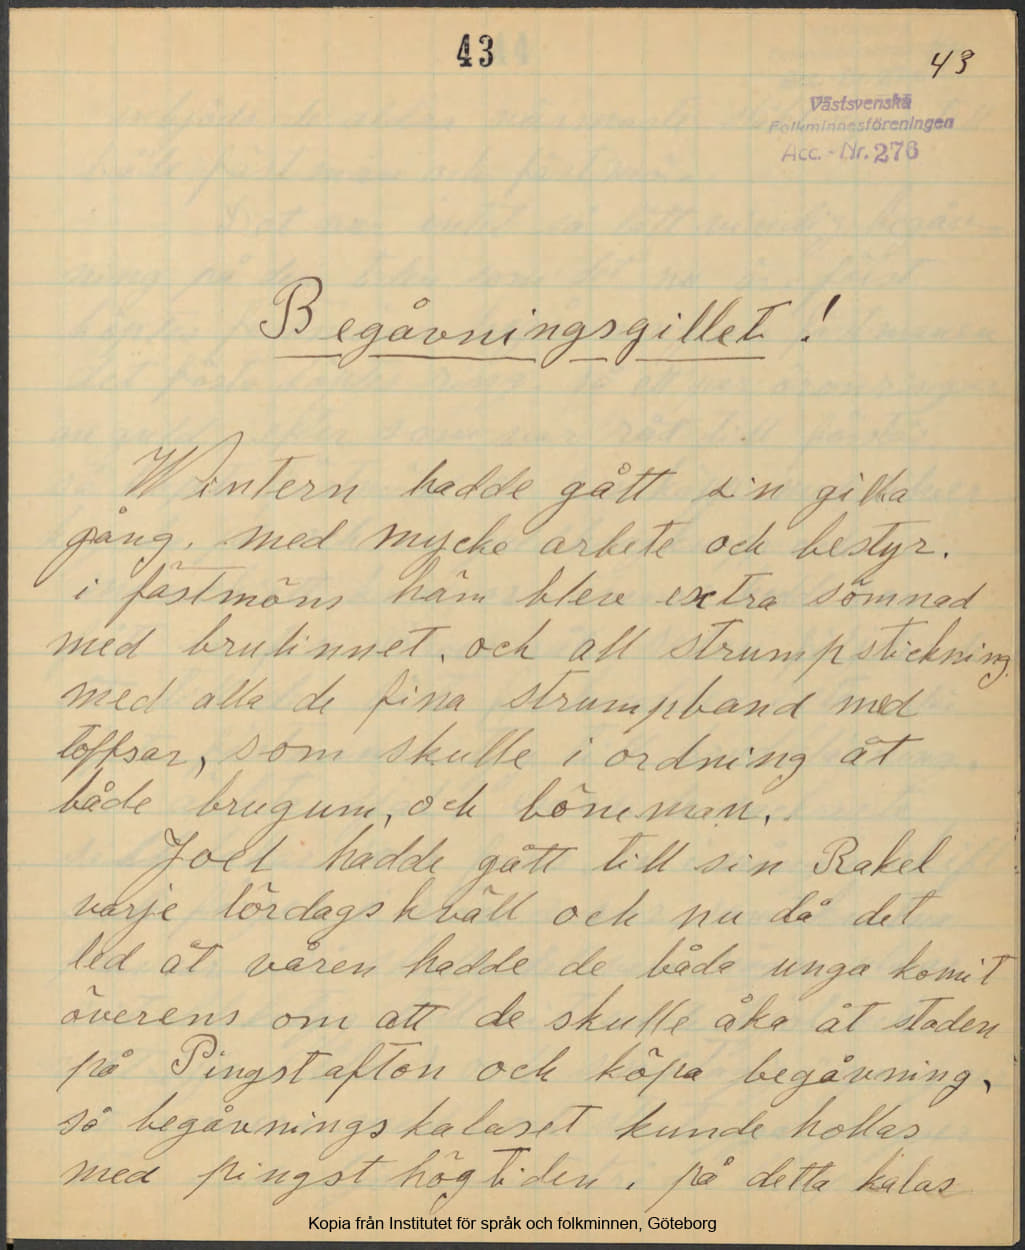 43
43
Västsvenska
Folkminnesföreningen
Acc. - Nr. 276
Begåvningsgillet !
Wintern hadde gått sin gilla
gång. med mycke arbete och bestyr.
i fästmöns häm blev extra sömnad
med brulinnet. och all strumpstickning
med alla de fina strumpband med
toffsar, som skulle i ordning åt
både brugum, och böneman.
Joel hadde gått till sin Rakel
varje lördagskväll och nu då det
led åt våren hadde de båda unga komit
överens om att de skulle åka åt staden
på Pingstafton och köpa begåvning,
så begåvningskalaset kunde hollas
med pingst högtiden. på detta kalas
Kopia från Institutet för språk och folkminnen, Göteborg